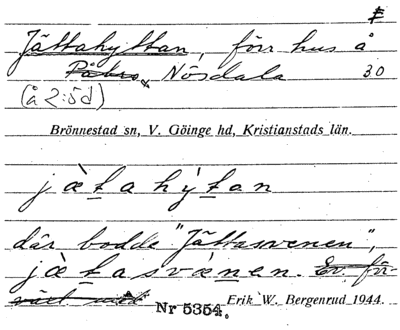 F
Jättahyttan, förr hus å
Påbro Nösdala 30
(å 2:5d)
Brönnestad sn, V. Göinge hd, Kristianstads län.
jàtahýtan
där bodde "Jättasvenen",
jàtasvǽnen. Ev. för-
växl med
Nr 5354. Erik W. Bergenrud 1944.